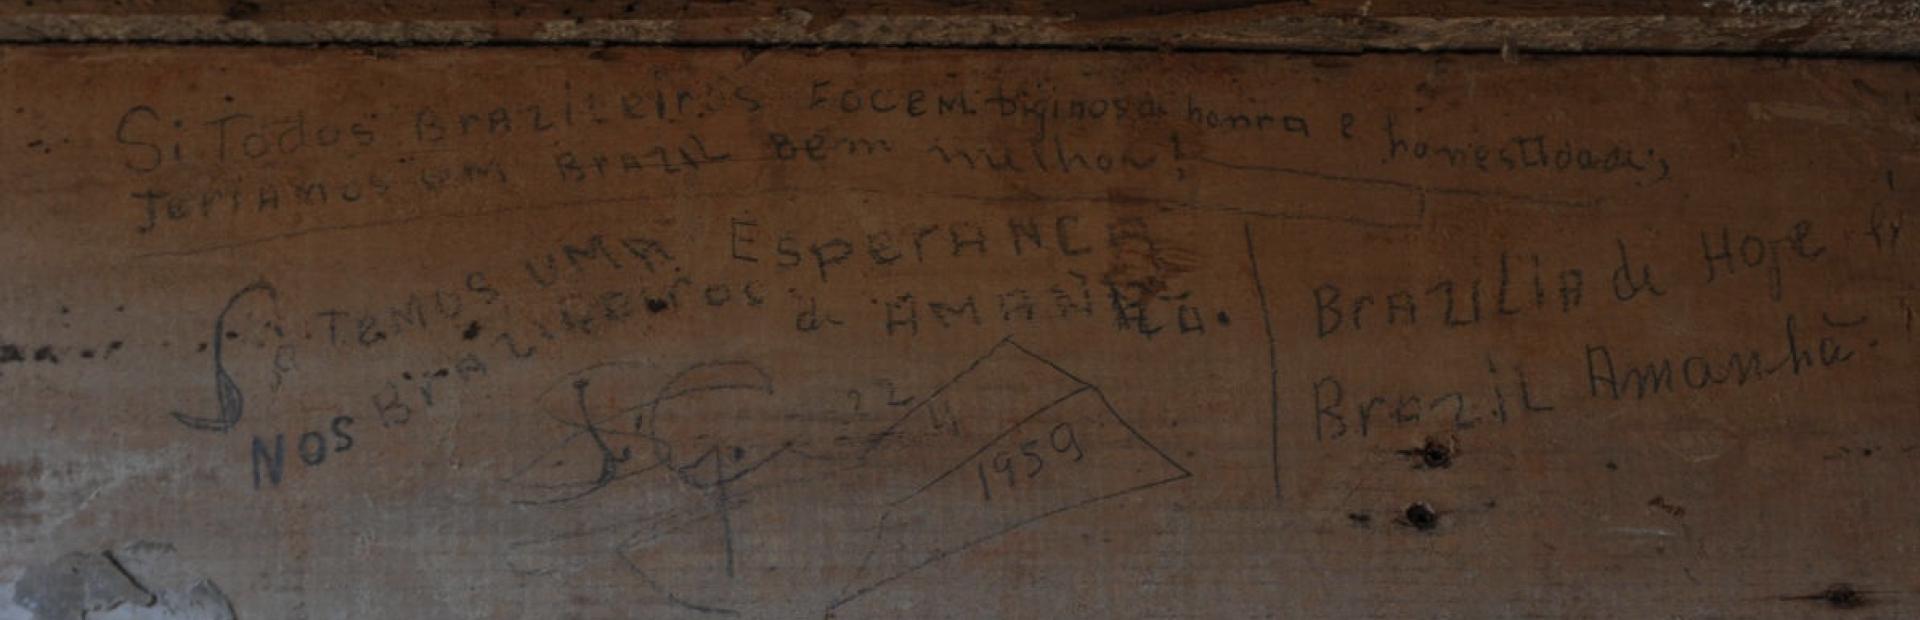 Si Todos BrAziLeiros FOCEM diginosde honra e honestidade;
TeriAmos um BrAziL Bem milhor!
Só TeMOS UMA EsperANCA
NOS BrAziLeiros de AMANHÃ.
22 4
1959
BrAZILIA de Hoje
BrAziL Amanhã.